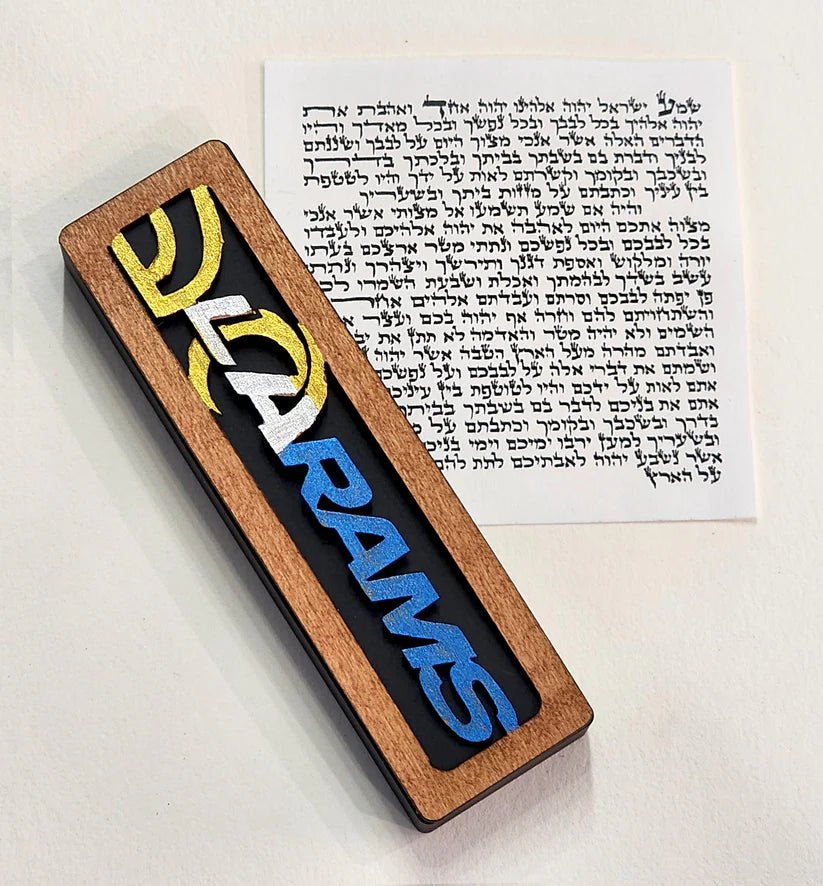 שמע ישראל יהוה אלהינו יהוה אחד ואהבת את
יהוה אלהיך בכל לבבך ובכל נפשך ובכל מאדך והיו
הדברים האלה אשר אנכי מצוך היום על לבבך ושננתם
לבניך ודברת בם בשבתך בביתך ובלכתך בדרך
ובשכבך ובקומך וקשרתם לאות על ידך והיו לטטפת
בין עיניך וכתבתם על מזזות ביתך ובשעריך
והיה אם שמע תשמעו אל מצותי אשר אנכי
מצוה אתכם היום לאהבה את יהוה אלהיכם ולעבדו
בכל לבבכם ובכל נפשכם ונתתי מטר ארצכם בעתו
יורה ומלקוש ואספת דגנך ותירשך ויצהרך ונתתי
עשב בשדך לבהמתך ואכלת ושבעת השמרו
פן יפתה לבבכם וסרתם ועבדתם אלהים
והשתחויתם להם וחרה אף יהוה בכם ועצר
השמים ולא יהיה מטר והאדמה לא תתן את
ואבדתם מהרה מעל הארץ הטבה אשר יהוה
ושמתם את דברי אלה על לבבכם ועל נפשכם
אתם לאות על ידכם והיו לטוטפת בין
אתם את בניכם לדבר בם בשבתך
בדרך ובשכבך ובקומך וכתבתם על
ובשעריך למען ירבו ימיכם וימי
אשר נשבע יהוה לאבתיכם לתת להם
על הארץ
ש
LA
RAMS